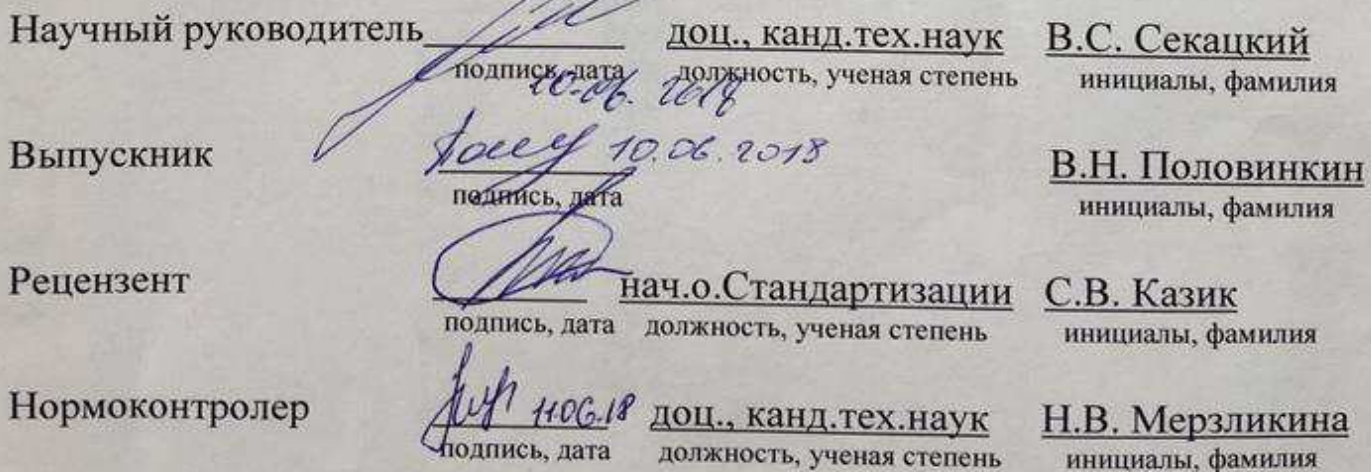 Научный руководитель доц., канд.тех.наук В.С. Секацкий
подпись, дата должность, ученая степень инициалы, фамилия
10.06. 2018
Выпускник 10.06.2018 В.Н. Половинкин
подпись, дата инициалы, фамилия
Рецензент нач.о.Стандартизации С.В. Казик
подпись, дата должность, ученая степень инициалы, фамилия
Нормоконтролер 11.06.18 доц., канд.тех.наук Н.В. Мерзликина
подпись, дата должность, ученая степень инициалы, фамилия